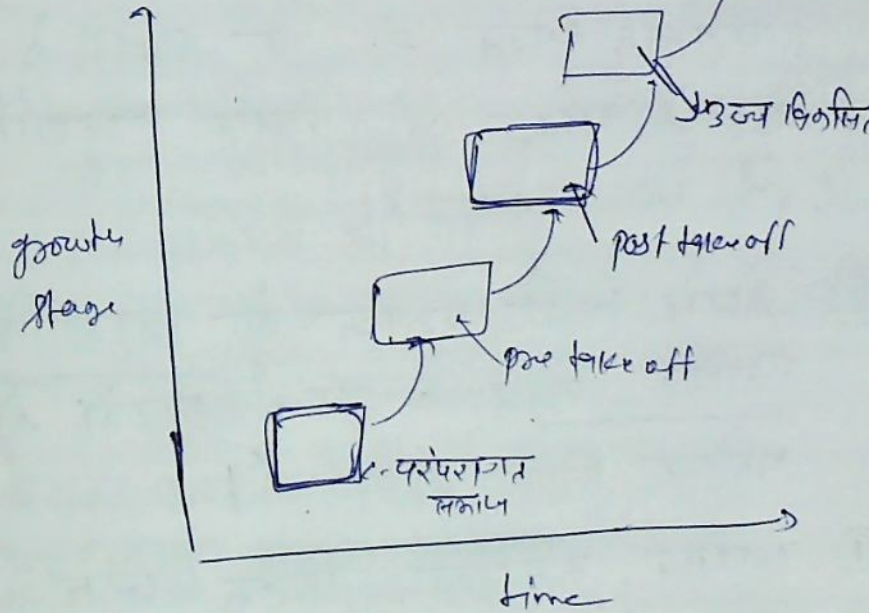 उच्च विकसित
post take off
growth
stage
pre take off
परंपरागत
समाज
time